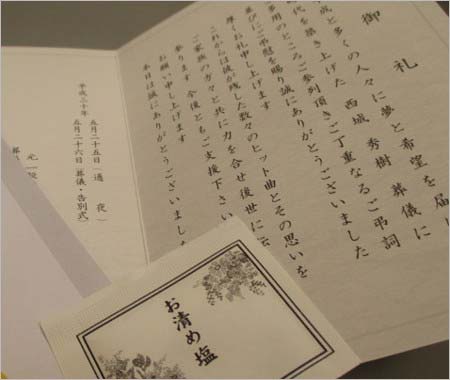 御礼
成と多くの人々に夢と希望を届け
代を築き上げた 西城 秀樹 葬儀に
多用のところご参列頂きご丁重なるご弔詞
並びにご弔慰を賜り誠にありがとうございました
厚くお礼申し上げます
これからは彼が残した数々のヒット曲とその思いを
ご家族の方々と共に力を合せ後世に伝
参ります 今後ともご支援下さい
お願い申し上げます
本日は誠にありがとうございました
平成三十年 五月二十五日(通夜)
五月二十六日(葬儀・告別式)
お清め塩